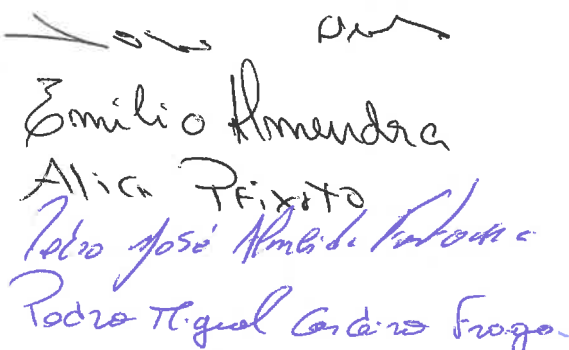 Emilio Almendra
Alice Peixoto
Pedro José Almeida
Pedro Miguel Cordeiro Fraga